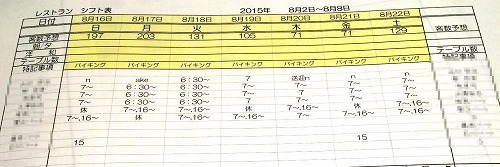 レストラン シフト表 2015年 8月2日~8月8日
日付 8月16日 8月17日 8月18日 8月19日 8月20日 8月21日 8月22日
日 月 火 水 木 金 土
客数予想 197 203 131 105 71 71 129 客数予想
朝/夕
洋 和
テーブル数 テーブル数
特記事項 バイキング バイキング バイキング バイキング バイキング バイキング バイキング 特記事項
n aka 6:30~ 7 送迎n n n
7~ 6:30~ 7~ 7~ 7~ 7~ 7~
7~ 6:30~ 7~ 7~ 7~ 7~ 7~
7~ 6:30~ 7~ 7~ 7~ 7~ 7~
休 休 7~,16~ 7~,16~ 7~,16~ 休
7~,16~ 休 7~,16~ 休 7~,16~ 7~,16~ 7~,16~
15 15